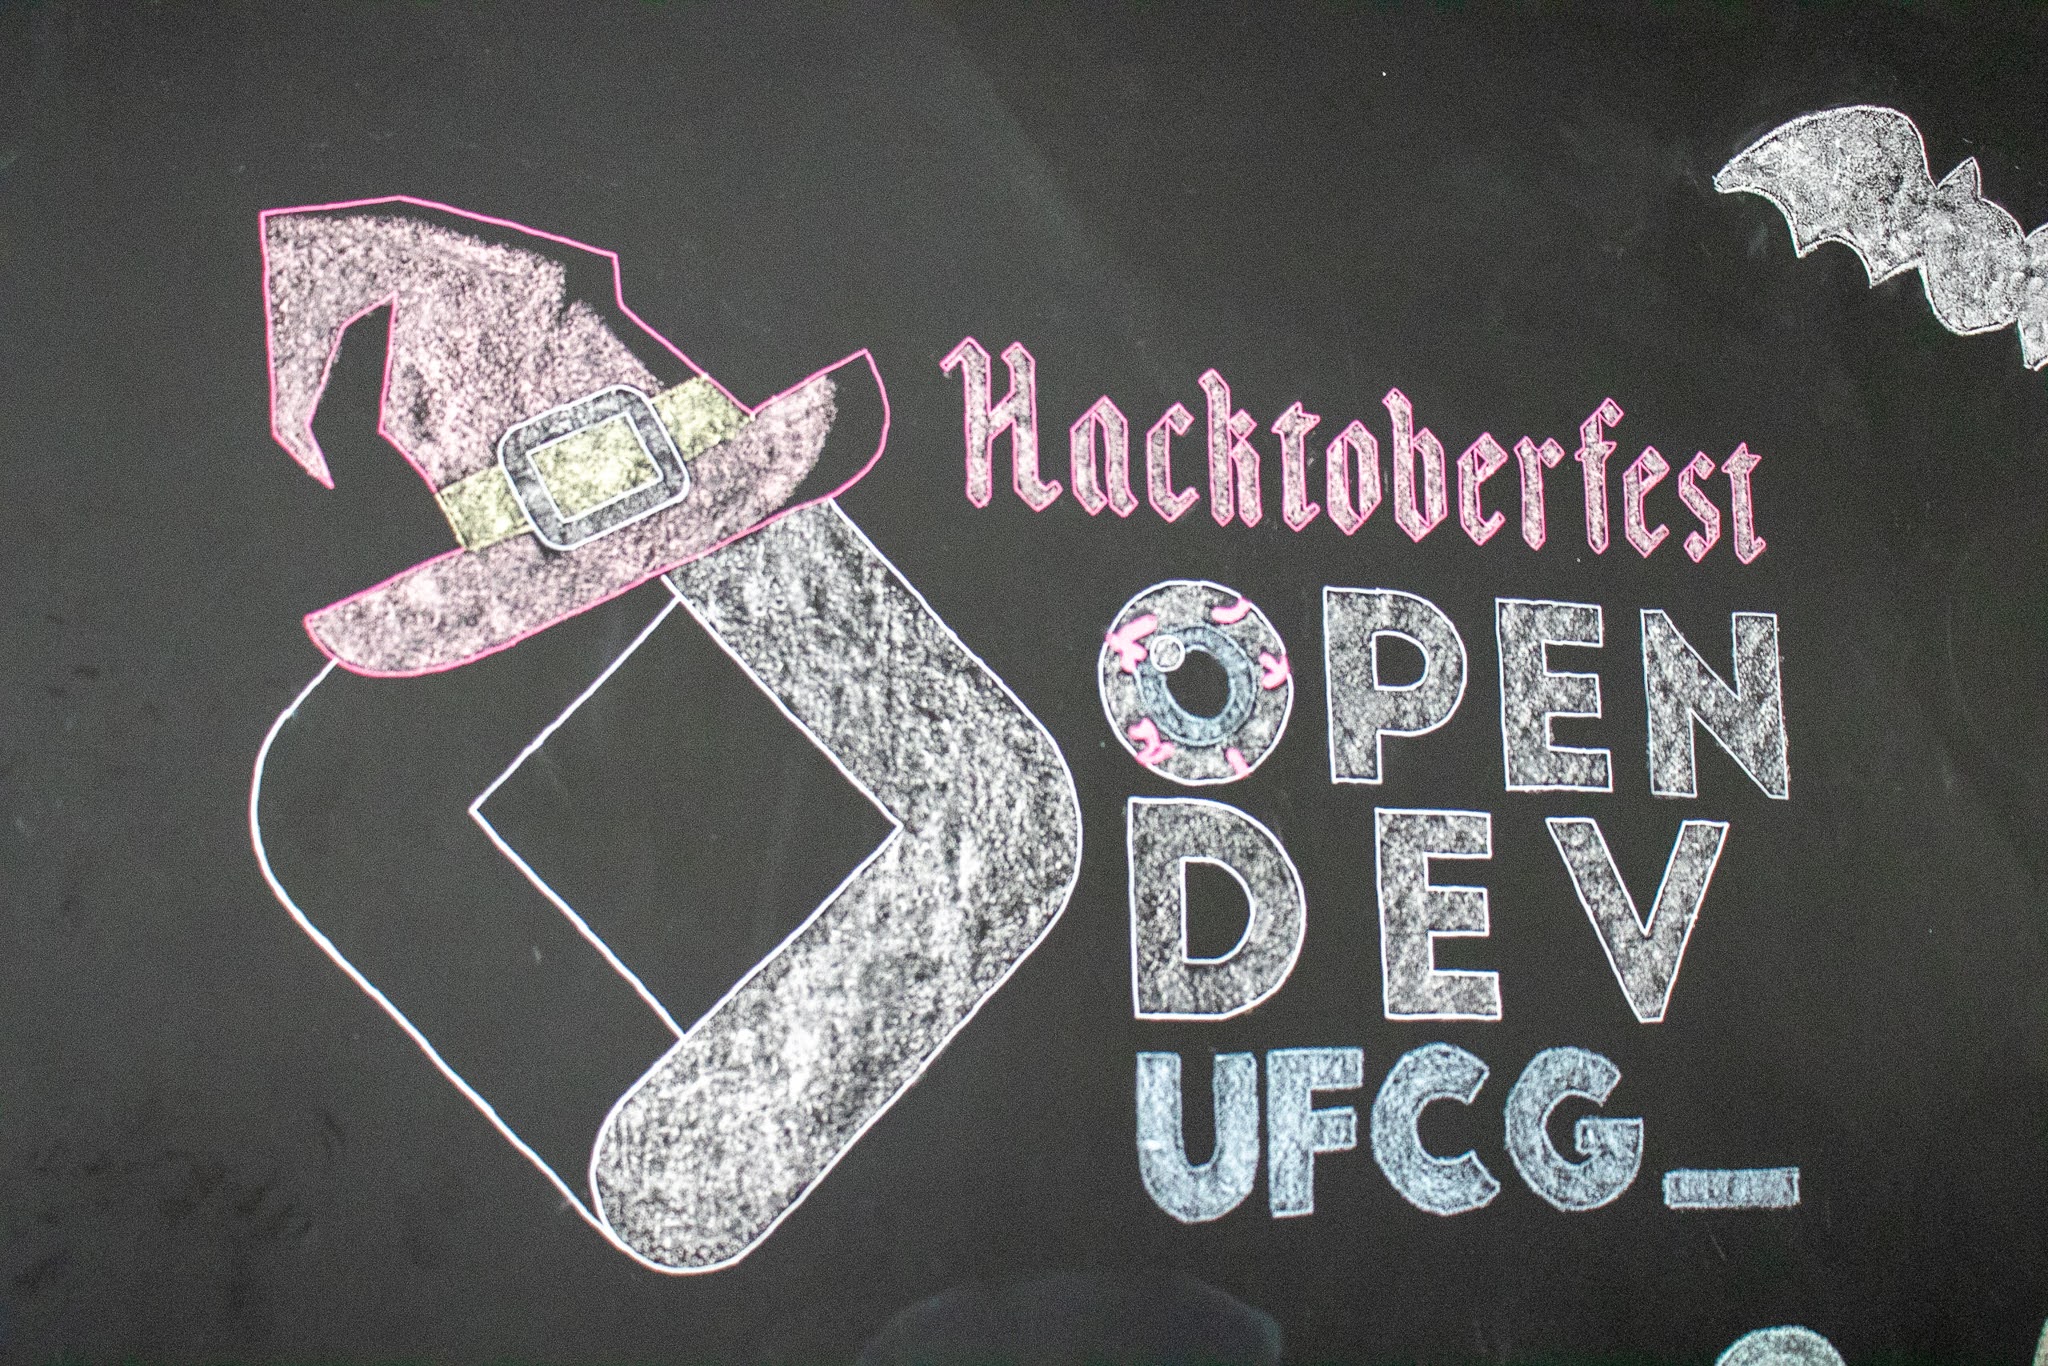 Hacktoberfest
OPEN
DEV
UFCG_